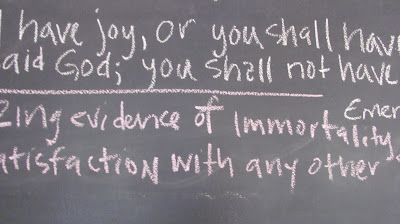 I have joy, or you shall have
said God; you shall not have
Emer
zing evidence of immortality
atisfaction with any other